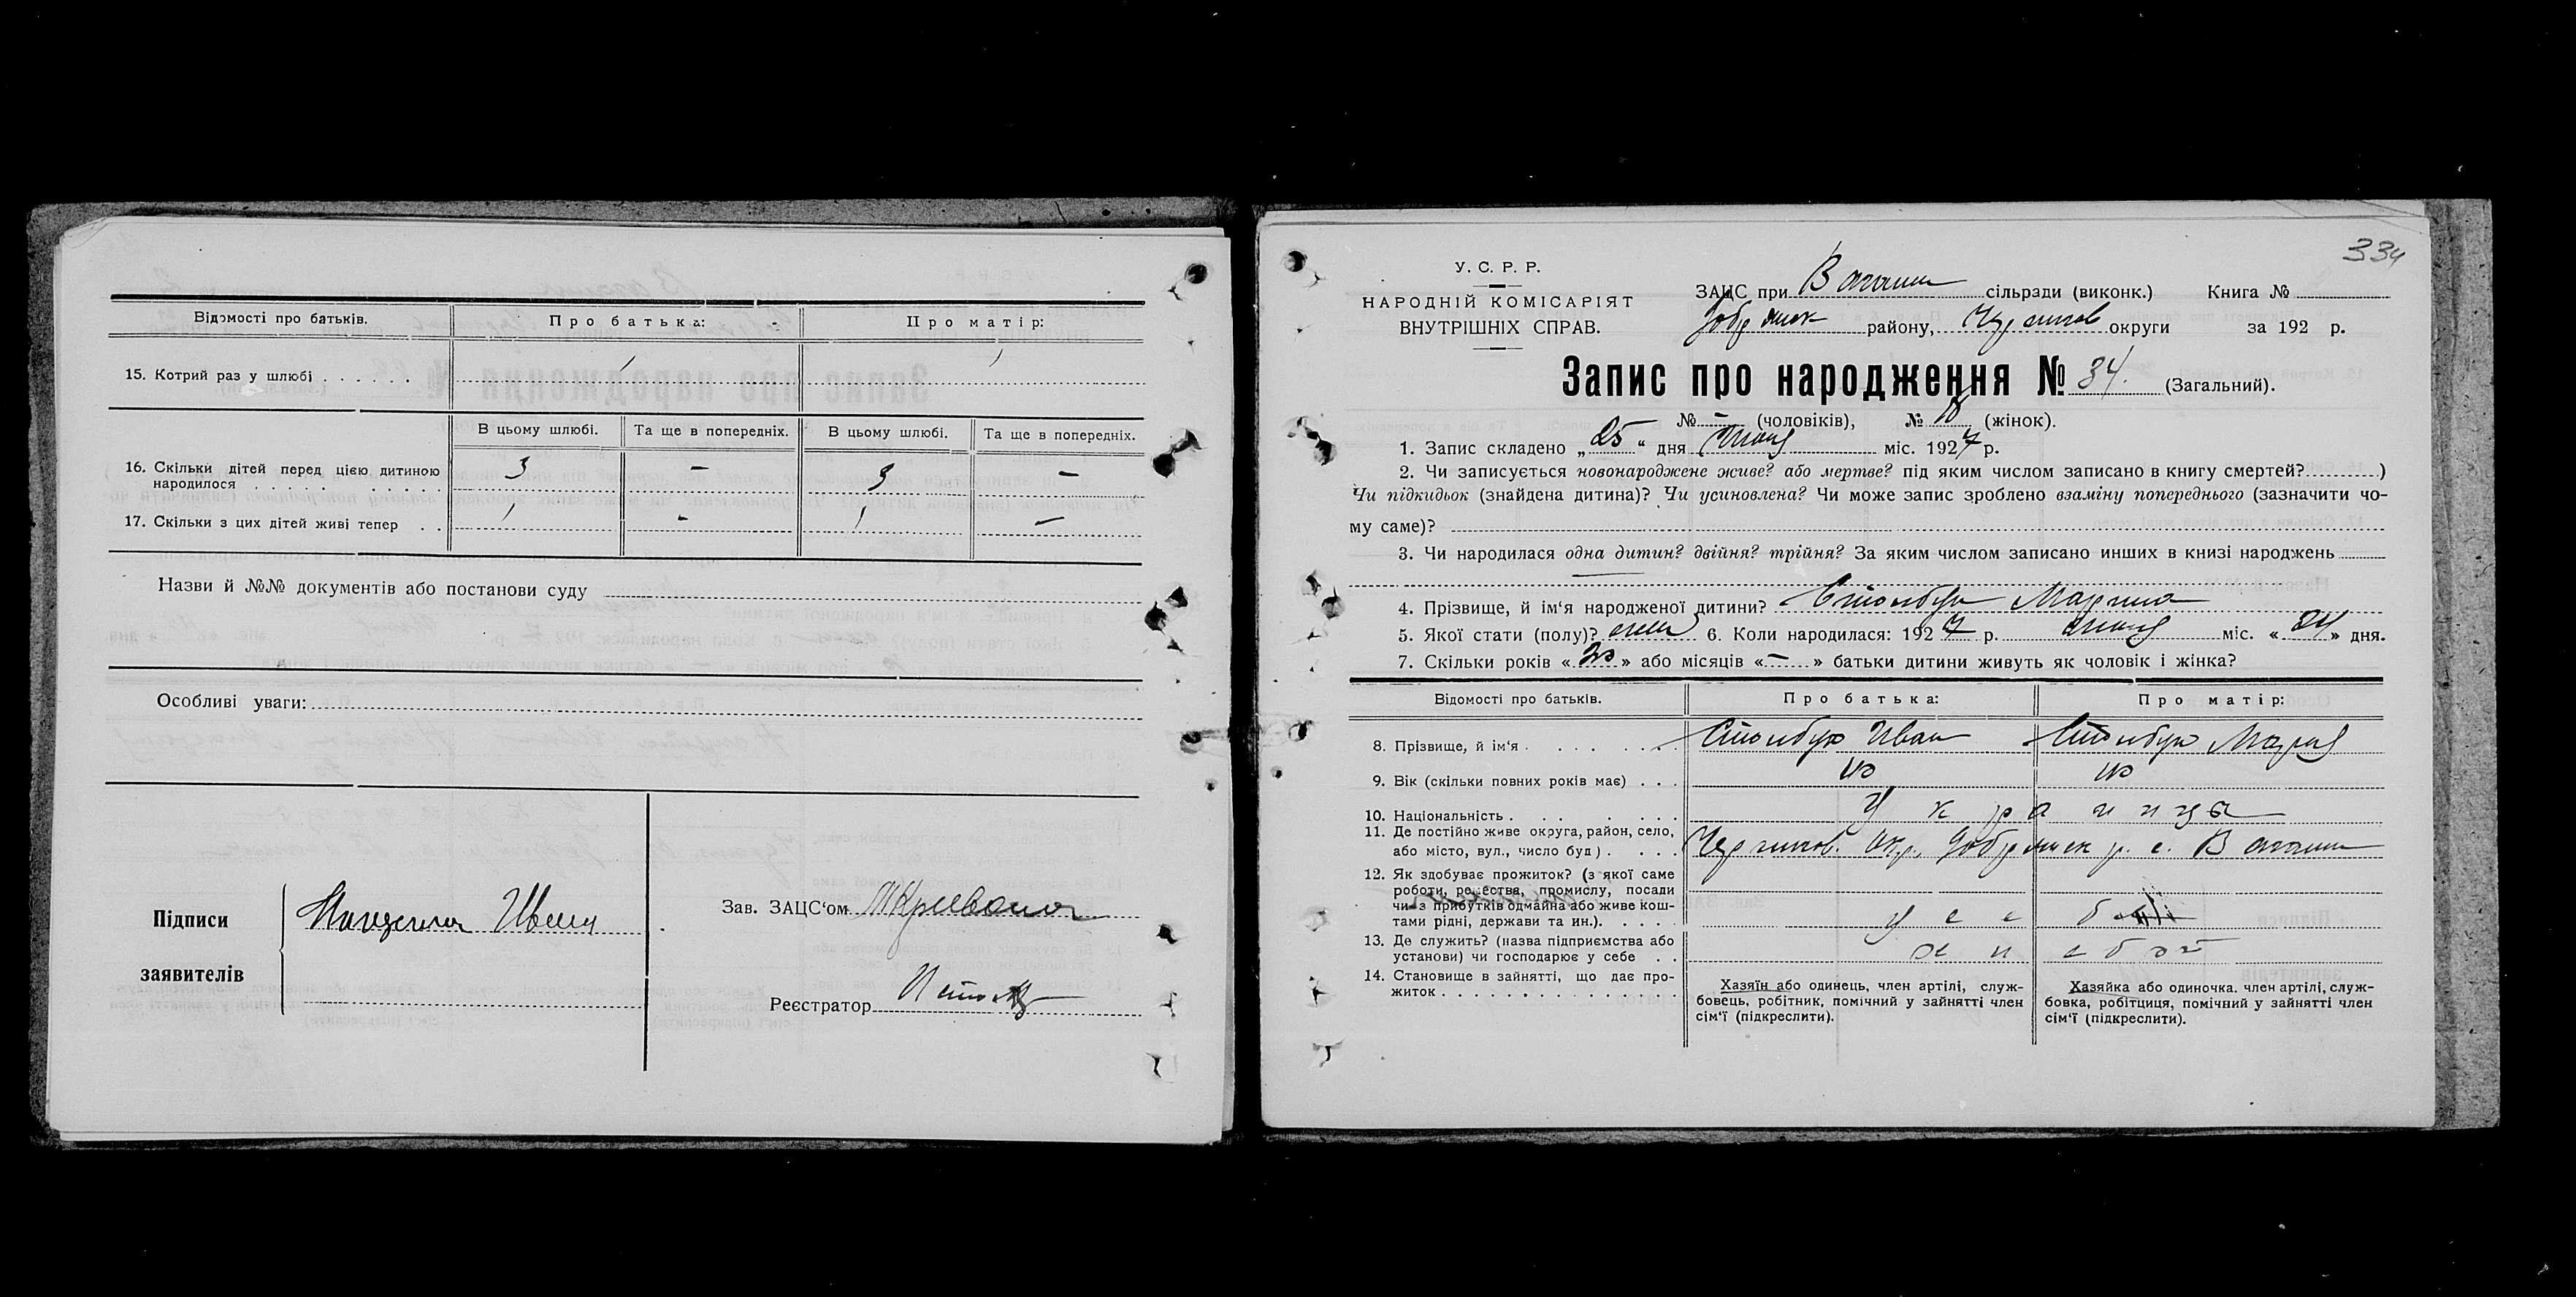 Відомості про батьків.
Про батька:
Про матір:
15. Котрий раз у шлюбі . . . . . .
1
1
В цьому шлюбі.
Та ще в попередніх.
В цьому шлюбі.
Та ще в попередніх.
16. Скільки дітей перед цією дитиною
народилося . . . . . . . . . .
3 — 3 —
17. Скільки з цих дітей живі тепер . .
1 — 1 —
Назви й №№ документів або постанови суду
Особливі уваги:
Підписи
заявителів
Иван
Зав. ЗАЦС'ом
Реєстратор
334
У. С. Р. Р.
НАРОДНІЙ КОМІСАРІЯТ
ВНУТРІШНІХ СПРАВ.
ЗАЦС при Ваганич сільради (виконк.) Книга №
Добрянск району, Чернигов округи за 192 р.
Запис про народження № 34. (Загальний).
№ — (чоловіків), № 18 (жінок).
1. Запис складено „25“ дня міс. 1927 р.
2. Чи записується новонароджене живе? або мертве? під яким числом записано в книгу смертей? )
Чи підкидьок (знайдена дитина)? Чи усиновлена? Чи може запис зроблено взаміну попереднього (зазначити чо-
му саме)?
3. Чи народилася одна дитин? двійня? трійня? За яким числом записано инших в книзі народжень
4. Прізвище, й ім'я народженої дитини? Столбун Марина
5. Якої стати (полу)? жен 6. Коли народилася: 1927 р. міс. «24» дня.
7. Скільки років «20» або місяців «—» батьки дитини живуть як чоловік і жінка?
Відомості про батьків.
Про батька:
Про матір:
8. Прізвище, й ім'я . . . . . . .
Столбун Иван
Столбун Мария
9. Вік (скільки повних років має) . . .
40
40
10. Національність . . . . . . .
Украинцы
11. Де постійно живе округа, район, село,
або місто, вул., число буд) . . . .
Чернигов. Окр., Добрянск р. с. Ваганич
12. Як здобуває прожиток? (з якої саме
роботи, ремества, промислу, посади
чи з прибутків од майна або живе кош-
тами рідні, держави та ин.). . . . .
13. Де служить? (назва підприємства або
установи) чи господарює у себе . .
у себе
хлебоп
14. Становище в зайнятті, що дає про-
житок . . . . . . . . . . . . . . .
Хазяїн або одинець, член артілі, служ-
бовець, робітник, помічний у зайнятті член
сім'ї (підкреслити).
Хазяйка або одиночка. член артілі, служ-
бовка, робітниця, помічний у зайнятті член
сім'ї (підкреслити).